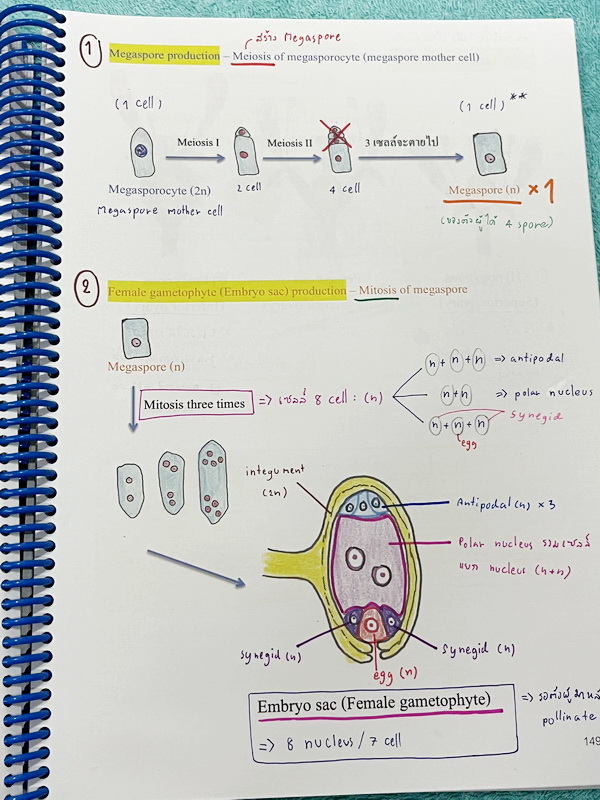 สร้าง Megaspore
1 Megaspore production – Meiosis of megasporocyte (megaspore mother cell)
(1 cell) (1 cell) **
Meiosis I Meiosis II 3 เซลล์จะตายไป
Megasporocyte (2n) 2 cell 4 cell Megaspore (n) × 1
Megaspore mother cell (ของตัวผู้ได้ 4 spore)
2 Female gametophyte (Embryo sac) production – Mitosis of megaspore
Megaspore (n)
n + n + n => antipodal
Mitosis three times => เซลล์ 8 cell : (n) n+n => polar nucleus
n + n + n synegid
egg
integument
(2n)
Antipodal (n) × 3
Polar nucleus รวมเซลล์
แยก nucleus (n+n)
synegid (n) synegid (n)
egg (n)
Embryo sac (Female gametophyte)
=> 8 nucleus / 7 cell
=> รอตัวผู้มา
pollinate
149